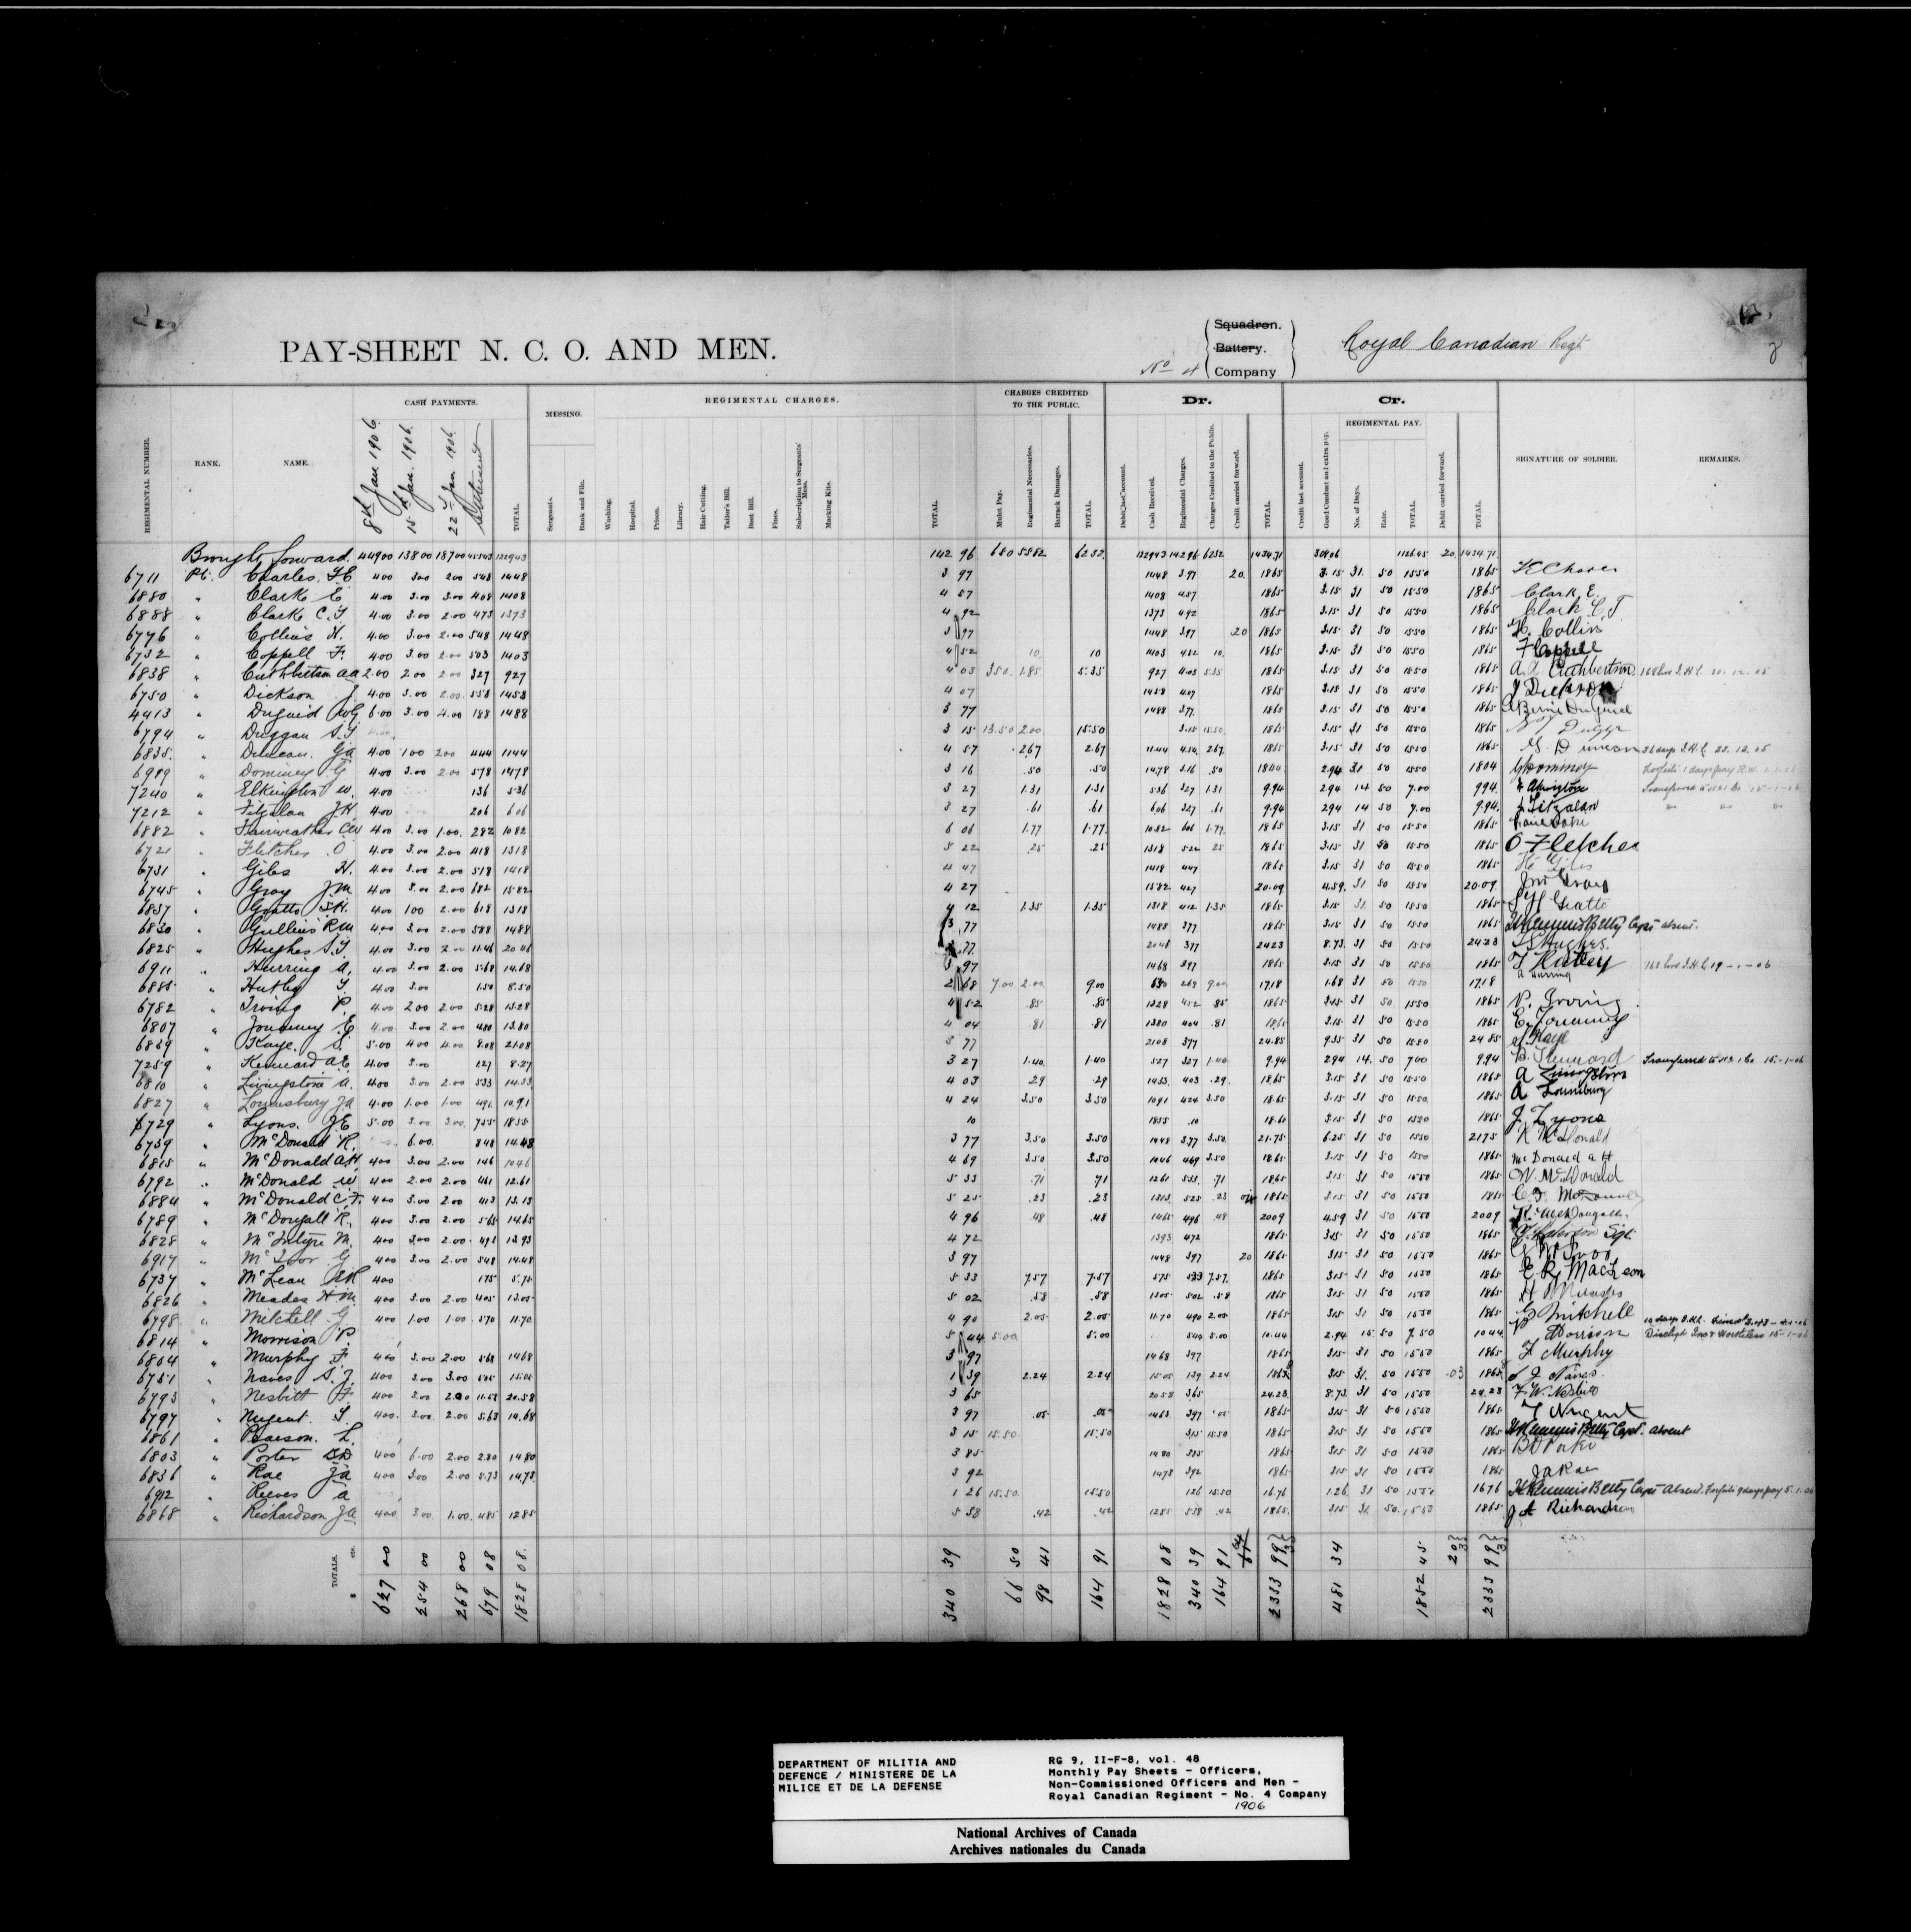 PAY-SHEET N. C. O. AND MEN.
No 4
Squadron.
Battery.
Company
Royal Canadian Regt
REGIMENTAL NUMBER. RANK. NAME. CASH PAYMENTS. MESSING. REGIMENTAL CHARGES. CHARGES CREDITED TO THE PUBLIC. Dr. Cr. REGIMENTAL PAY. SIGNATURE OF SOLDIER. REMARKS.
8th Jan. 1906. 15th Jan. 1906. 22nd Jan 1906. Settlement TOTAL Sergeants. Rank and File. Washing. Hospital. Prison. Library. Hair Cutting. Tailor's Bill. Boot Bill. Fines. Subscription to Sergeants' Mess. Marking Kits. TOTAL Mulct Pay. Regimental Necessaries. Barrack Damages. TOTAL Debit last account. Cash Received. Regimental Charges. Charges Credited to the Public. Credit carried forward. TOTAL Credit last account. Good Conduct and extra pay. No. of Days. Rate. TOTAL Debit carried forward. TOTAL
Brought forward. 449 00 138 00 187 00 1229 43 142 96 6 80 1229 43 142 96 62 52 1434.71 308 06 1126 45 20 1434.71
6711 Pt. Charles 4 00 3 00 2 00 5 48 14 48 3 97 14 48 3 97 20 18 65 3.15 31 50 15 50 18 65
6880 " Clark E 4.00 3.00 3.00 4 08 14 08 4 57 14 08 4 57 18 65 3.15 31 50 15 50 18 65 Clark E.
6888 " Clark C.T 4.00 3.00 2.00 4 73 13 73 4 92 13 73 4 92 18 65 3.15 31 50 15 50 18 65 Clark C. T
6776 " Collins H. 4.00 3.00 2.00 5 48 14 48 3 97 14 48 3 97 20 18 65 3.15 31 50 15 50 18 65 H. Collins
6732 " Coppell F. 4.00 3.00 2.00 5 03 14 03 4 52 10 10 14 03 4 52 10 18 65 3.15 31 50 15 50 18 65 F Coppell
6838 " Cuthbertson AA 2.00 2 00 2 00 3 27 9 27 4 03 3 50 1.85 5.35 9 27 4 03 5.35 18 65 3.15 31 50 15 50 18 65 A. A. Cuthbertson
6750 " Dickson J 4.00 3.00 2.00 5 58 14 58 4 07 14 58 4 07 18 65 3.15 31 50 15 50 18 65 J Dickson
4413 " Duguid 6.00 3.00 4.00 1 88 14 88 3 77 14 88 3 77 18 65 3.15 31 50 15 50 18 65
6794 " Duggan 3 15 13.50 2.00 15.50 3.15 15.50 18 65 3.15 31 50 15 50 18 65
6835 " Duncan. GA 4.00 1 00 2 00 4 44 11 44 4 54 2.67 2.67 11 44 4.54 2.67 18 65 3.15 31 50 15 50 18 65 G. Duncan
Dominey G 4.00 3.00 2.00 5 78 14 78 3 16 .50 .50 14.78 3.16 .50 2.94 31 50 15 50 G Dominey
7240 " Elkington W. 4.00 1 36 5.36 3 27 1.31 1.31 5 36 3 27 1 31 9.94 2.94 14 50 7.00 9 94
7212 " Fitzalan JH 4.00 2 06 6 06 3 27 .61 .61 6 06 3 27 .61 9.94 2 94 14 50 7.00 9.94 J Fitzalan
6882 " Fairweather CW 4 00 3.00 1.00 2 82 10 82 6 06 1.77 1.77 10 82 6 06 1.77 18 65 3.15 31 50 15 50 18 65
6721 " Fletcher O 4.00 3.00 2.00 4 18 13 18 5 22 .25 .25 13 18 5 22 25 18 65 3.15 31 50 15 50 18 65 O Fletcher
6731 " Giles H. 4.00 3.00 2.00 5 18 14 18 4 47 14 18 4 47 18 65 3.15 31 50 15 50 18 65 H Giles
6745 " Gray JM 4.00 3.00 2.00 6 82 15 82 4 27 15 82 4 27 20.09 4.59 31 50 15 50 20.09 Jno Gray
6837 " Gratto SH. 4.00 1 00 2.00 6 18 13 18 4 12 1.35 1.35 13 18 4 12 1.35 18 65 3.15 31 50 15 50 18 65 S H Gratto
6830 " Gullins RM 4.00 3.00 2.00 5 88 14 88 3 77 14 88 3 77 18 65 3.15 31 50 15 50 18 65 Kemmis Betty Capt absent.
6825 " Hughes 4.00 3.00 2 00 11.46 20 46 3.77 20 46 3 77 24 23 8.73 31 50 15 50 24 23 Hughes.
6911 " Hurring A. 4.00 3.00 2.00 5.68 14.68 3 97 14 68 3 97 18 65 3.15 31 50 15 50 18 65
6885 " Hutley T. 4.00 3.00 1.50 8.50 7.00 2.00 9.00 9.00 17.18 1.68 31 50 15 50 17.18 T Hutley
A Hurring
6782 " Irving P. 4.00 2 00 2 00 5.28 13.28 4 52 .85 .85 13 28 4 52 85 18 65 3.15 31 50 15 50 18 65 P. Irving
6807 " Jouaney E 4.00 3.00 2.00 4 80 13.80 4 04 .81 .81 13 80 4 04 .81 18 65 3.15 31 50 15 50 18 65
6839 " Kaye. S. 5.00 4.00 4.00 8.08 21.08 3 77 21 08 3 77 24.85 9.35 31 50 15 50 24 85 S Kaye
7259 " Kennard A.E. 4.00 3.00 1.27 8.27 3 27 1.40 1.40 3 27 1.40 9.94 2 94 14 50 7 00 9 94 Transferred to No 1 Co 15-1-06
6810 " Livingstone A. 4.00 3.00 2 00 5 33 14.33 4 03 .29 .29 14 33 4 03 .29 18 65 3.15 31 50 15 50 18 65 A Livingstone
6827 " Lounsbury JA 4.00 1.00 1.00 4 91 10.91 4 24 3.50 3.50 10 91 4 24 3.50 18 65 3.15 31 50 15 50 18 65 A Lounsbury
6729 " Lyons. JE 5.00 3.00 3.00 7 55 18 55 10 18 55 .10 18.65 3.15 31 50 15 50 18 65 J. Lyons
6739 " McDonald R. 6.00 8 48 14.48 3 77 3.50 3.50 14 48 3.77 3.50 21.75 6.25 31 50 15 50 21 75 R McDonald
6815 " McDonald AH 4 00 3.00 2.00 1 46 10 46 4 69 3.50 3.50 10 46 4 69 3.50 18 65 3.15 31 50 15 50 18 65 McDonald A H
6792 " McDonald W 4 00 2.00 2.00 4 61 12.61 5 33 .71 .71 12 61 5 33 .71 18 65 3.15 31 50 15 50 18 65 W. McDonald
6884 " McDonald C.F. 4 00 3.00 2 00 4 13 13.13 5 25 .23 .23 13 13 5 25 .23 18 65 3.15 31 50 15 50 18 65 C. F. McDonald
6789 " McDougall R. 4 00 3.00 2.00 5 65 14.65 4 96 .48 .48 14 65 4 96 .48 20 09 4.59 31 50 15 50 20 09 R. McDougall
6828 " McIntyre M. 4 00 3.00 2.00 4 93 13.93 4 72 13 93 4 72 18 65 3.15 31 50 15 50 18 65
6917 " McIvor G 4 00 3.00 2.00 5 48 14.48 3 97 14 48 3 97 20 18 65 3.15 31 50 15 50 18 65 G McIvor
6737 " McLean ER 4 00 1 75 5.75 5 33 7.57 7.57 5 75 5 33 7.57 18 65 3.15 31 50 15 50 18 65 E. R. MacLean
6826 " Meades H M. 4 00 3.00 2.00 4 05 13.05 5 02 .58 .58 13 05 5 02 .58 18 65 3.15 31 50 15 50 18 65
6798 " Mitchell G 4 00 1.00 1.00 5 70 11.70 4 90 2.05 2.05 11 70 4 90 2.05 18 65 3.15 31 50 15 50 18 65 G Mitchell
6814 " Morrison P. 5 44 5.00 5.00 5 44 5.00 10.44 2.94 15 50 7.50 10 44 P Morrison
6804 " Murphy F. 4 00 3.00 2.00 5 68 14 68 3 97 14 68 3 97 18 65 3.15 31 50 15 50 18 65 F Murphy
6751 " Naves S. J. 4 00 3.00 3.00 5 05 15.05 1 39 2.24 2.24 15 05 1 39 2.24 3.15 31 50 15 50 .03 S J Naves
6793 " Nesbitt F. 4 00 3.00 2.00 11.58 20.58 3 65 20 58 3 65 24.23 8.73 31 50 15 50 24.23 F. W. Nesbitt
6797 " Nugent. T. 4 00 3.00 2.00 5.63 14.63 3 97 .05 .05 14 63 3 97 .05 18 65 3.15 31 50 15 50 18 65 T Nugent
6861 " L. 3 15 15.50 15.50 3.15 15.50 18 65 3.15 31 50 15 50 18 65 Kemmis Betty Capt. absent
6803 " Porter BD 4 00 6.00 2.00 2.80 14 80 3 85 14 80 3 85 18 65 3.15 31 50 15 50 18 65 B D Porter
6836 " Rae JA 4 00 3 00 2.00 5.73 14.73 3 92 14 73 3 92 18 65 3.15 31 50 15 50 18 65 J A Rae
6912 " Reeves A 1 26 15.50 15.50 1 26 15.50 16 76 1.26 31 50 15 50 16 76 Kemmis Betty Capt Absent. Forfeits 9 days pay 5.1.06
6868 " Richardson JA 4 00 3.00 1.00 4 85 12 85 5 38 .42 .42 12 85 5 38 .42 18 65 3.15 31 50 15 50 18 65 J A Richardson
TOTALS. 627 00 254 00 268 00 679 08 1828 08 340 39 66 50 98 41 164 91 1828 08 340 39 164 91 2333 99 481 34 1852 45 20 2333 99
DEPARTMENT OF MILITIA AND
DEFENCE / MINISTERE DE LA
MILICE ET DE LA DEFENSE
RG 9, II-F-8, vol. 48
Monthly Pay Sheets - Officers,
Non-Commissioned Officers and Men -
Royal Canadian Regiment - No. 4 Company
1906
National Archives of Canada
Archives nationales du Canada